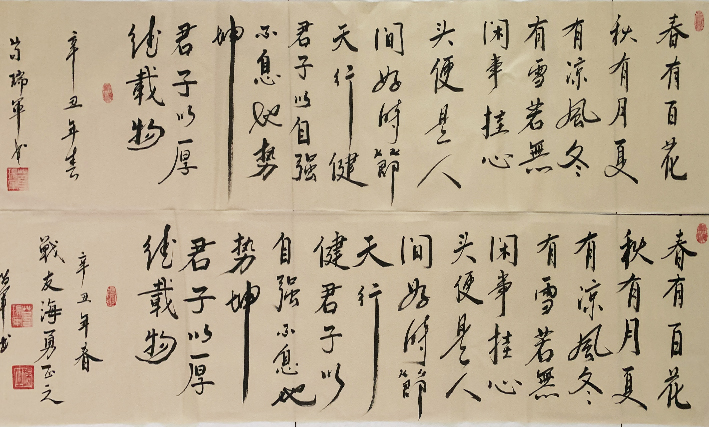 春有百花
秋有月夏
有凉風冬
有雪若無
闲事挂心
头便是人
间好时節
天行健
君子以自强
不息地势
坤
君子以厚
德载物
辛丑年春
瑞軍书
春有百花
秋有月夏
有凉風冬
有雪若無
闲事挂心
头便是人
间好时節
天行
健君子以
自强不息地
势坤
君子以厚
德载物
辛丑年春
戰友海勇正之